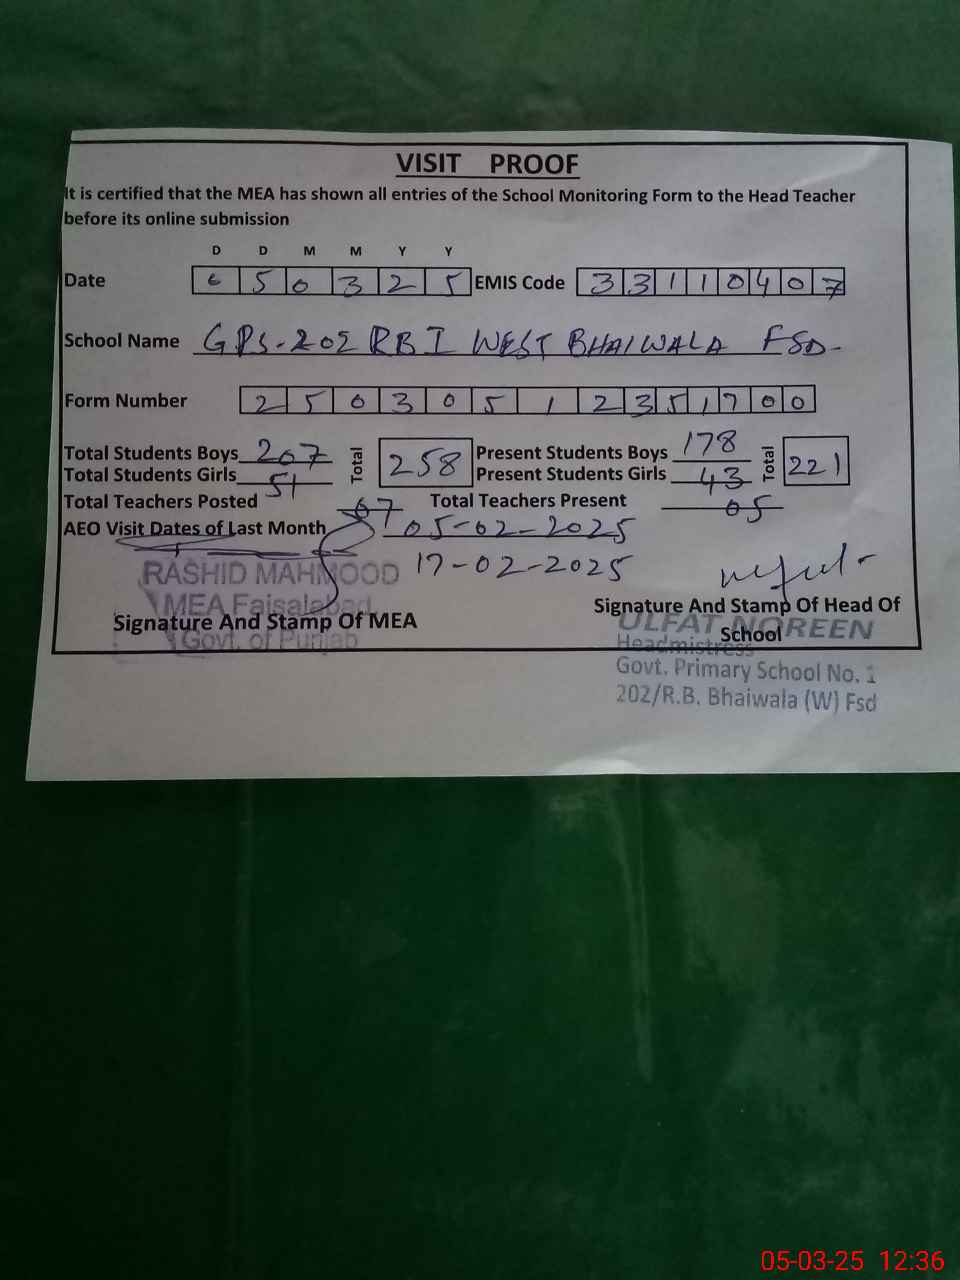 VISIT PROOF
It is certified that the MEA has shown all entries of the School Monitoring Form to the Head Teacher
before its online submission
D D M M Y Y
Date 0 5 0 3 2 5 EMIS Code 3 3 1 1 0 4 0 7
School Name GPS-202 RB I WEST BHAIWALA FSD-
Form Number 2 5 0 3 0 5 1 2 3 5 1 7 0 0
Total Students Boys 207 Total 258 Present Students Boys 178 Total 221
Total Students Girls 51 Present Students Girls 43
Total Teachers Posted 07 Total Teachers Present 05
AEO Visit Dates of Last Month 05-02-2025
17-02-2025
RASHID MAHMOOD
MEA Faisalabad
Govt. of Punjab
Signature And Stamp Of MEA
Signature And Stamp Of Head Of
School
ULFAT NOREEN
Headmistress
Govt. Primary School No. 1
202/R.B. Bhaiwala (W) Fsd
05-03-25 12:36